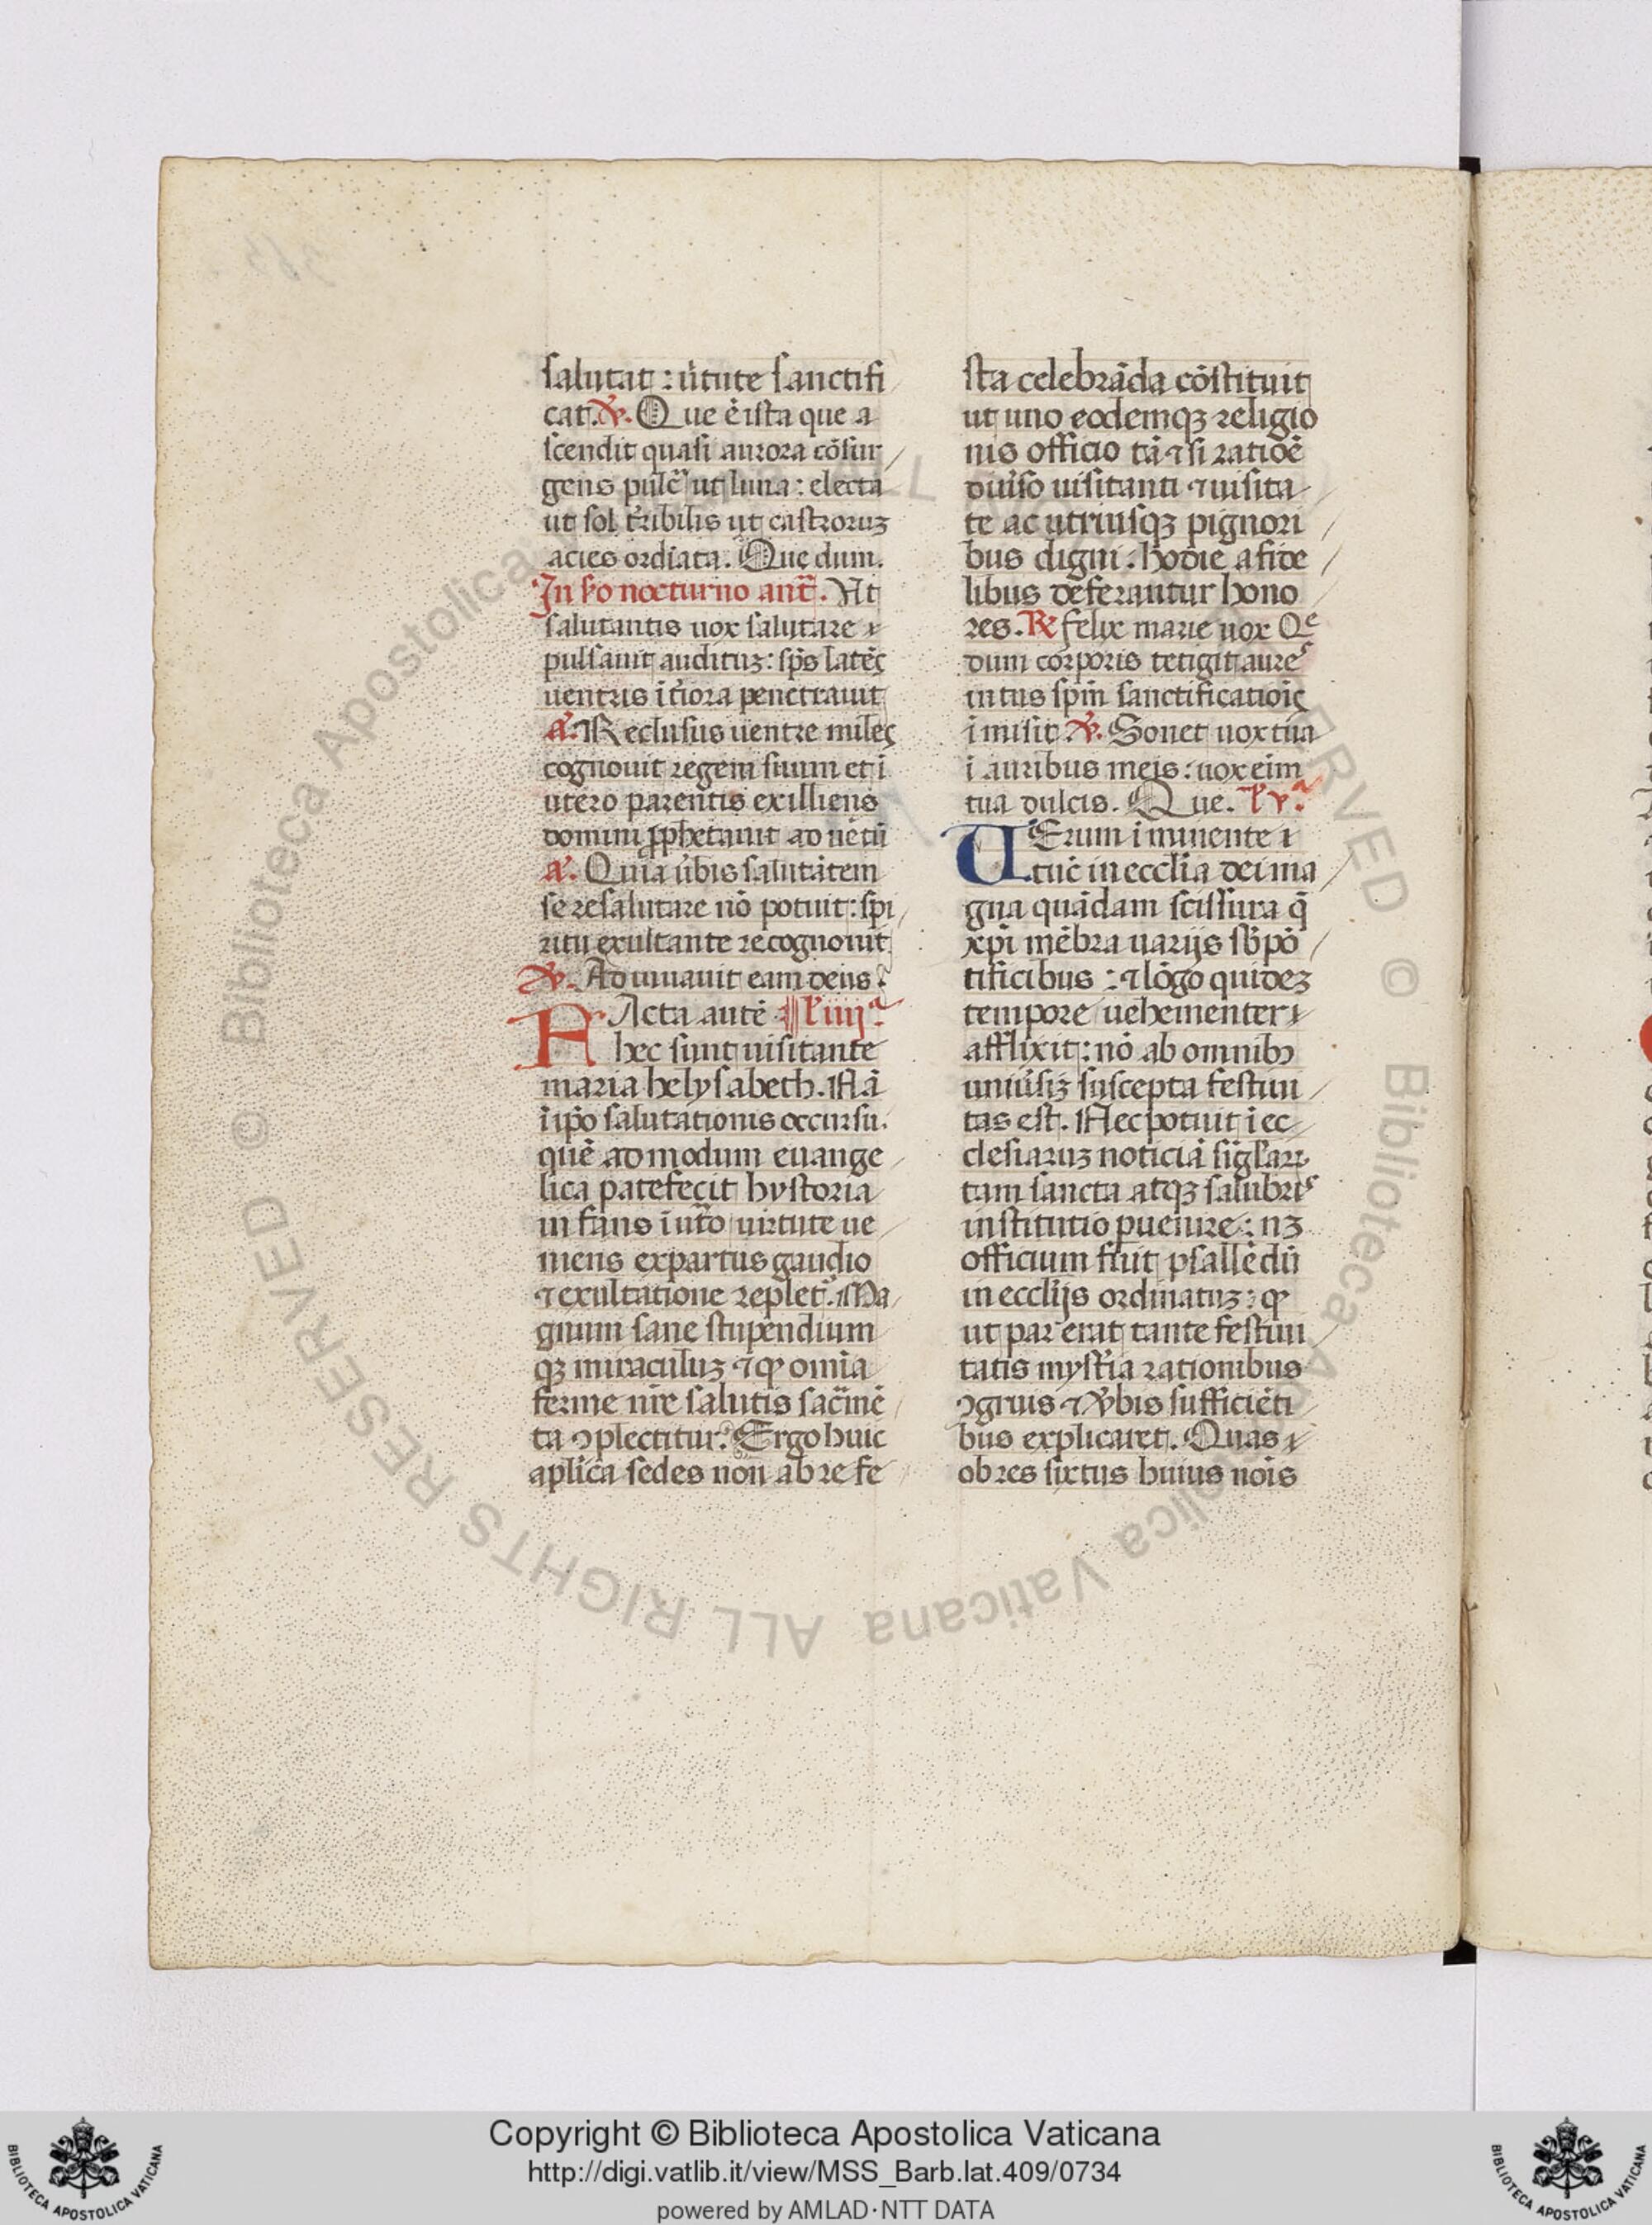 salutat : ũtute sanctifi
cat. ℣. Que ẽ ista que a
scendit quasi aurora cõsur
gens pulc̃ ut luna : electa
ut sol t̃ribilis ut castroruꝫ
acies ordĩata. Que dum.
In ſo nocturno ant̃. Ut
salutantis uox salutare ı
pulsauit audituꝫ : sp̃s latẽs
uentris ĩt̃iora penetrauit
a͛. Reclusus uentre miles
cognouit regem suum et ĩ
utero parentis exilliens
domini ꝓphetauit aduẽtũ
a͛. Quia ũbis salutãtem
se resalutare nõ potuit : spi
ritu exultante recognouit
℣. Adiuuauit eam deus
FActa autẽ l͛ iiij͛ª
hec sunt uisitante
maria helysabeth. Nã
ĩ ip̃o salutationis occursu.
quẽ admodum euange
lica patefecit hystoria
infans ĩ ut̃o uirtute ue
niens expartus gaudio
⁊ exultatione replet̃. Ma
gnum sane stupendum
qꝫ miraculuꝫ ⁊ qꝫ omĩa
ferme nr̃e salutis sac̃mẽ
ta ꝯplectitur. Ergo huic
aplĩca sedes non ab re fe
sta celebrãda cõstituit
ut uno eodemqꝫ religio
nis officio tã ⁊ si ratiõe
diũso uisitanti ⁊ uisita
te ac utriusqꝫ pignori
bus digni : hodie a fide
libus deferantur hono
res. ℟ felix marie uox Qᵉ
dum corporis tetigit aures
intus spm̃ sanctificatiõis
ĩmisit ℣. Sonet uox tua
ĩ auribus meis : uox eim
tua dulcis. Que. l͛ v͛.ª
UErum ĩminente ı
tũc in eccl̃ia dei ma
gna quãdam scissura q̃
xp̃i mẽbra uarijs sb̃ põ
tificibus : ⁊ lõgo quideꝫ
tempore uehementer ı
afflixit : nõ ab omnibꝰ
uniũsiꝫ suscepta festiui
tas est. Nec potuit ĩ ec
clesiaruꝫ noticiã sig̃lar
tam sancta atqꝫ salubris
institutio puenire : nꝫ
officium fuit psallẽdũ
in eccl̃ijs ordinatuꝫ : qꝫ
ut par erat tante festiui
tatis myst̃ia rationibus
ꝯgruis ⁊ ℣bis sufficiẽti
bus explicaret. Quas ı
ob res sixtus huius nõis
Copyright © Biblioteca Apostolica Vaticana
http://digi.vatlib.it/view/MSS_Barb.lat.409/0734
powered by AMLAD·NTT DATA
BIBLIOTECA APOSTOLICA VATICANA
BIBLIOTECA APOSTOLICA VATICANA
© Biblioteca Apostolica Vaticana ALL RIGHTS RESERVED
© Biblioteca Apostolica Vaticana ALL RIGHTS RESERVED